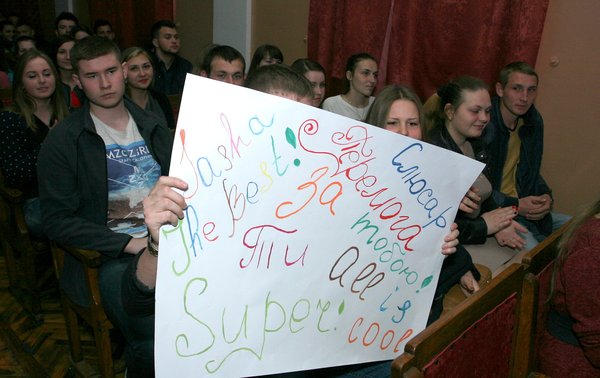 Sasha
The Best!
Слюсар
Перемога
за
тобою!
Ти
Super!
All
is
cool